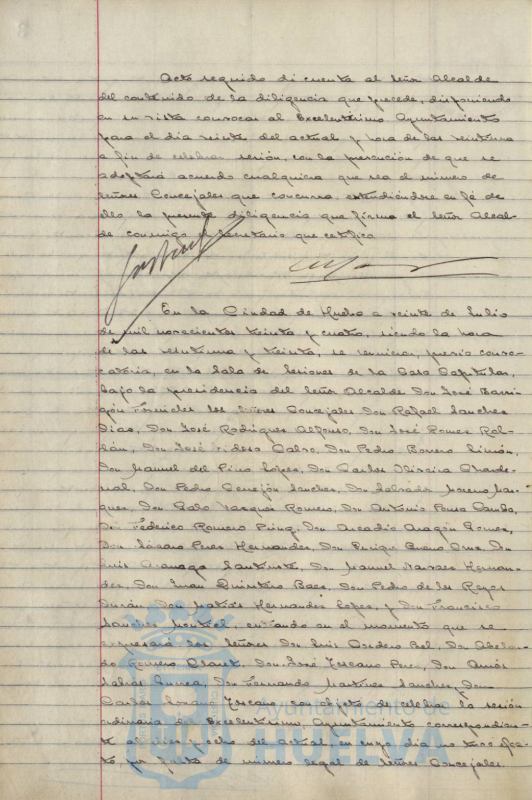 Acto seguido di cuenta al Señor Alcalde
del contenido de la diligencia que precede, disponiendo
en su vista convocar al Excelentísimo Ayuntamiento
para el día veinte del actual y hora de las veintiuna
a fin de celebrar sesión, con la precaución de que se
adoptará acuerdo cualquiera que sea el número de
Señores Concejales que concurra, extendiéndose en fé de
ello la presente diligencia que firma el Señor Alcal-
de conmigo el Secretario que certifico
En la Ciudad de Huelva a veinte de Julio
de mil novecientos treinta y cuatro, siendo la hora
de las veintiuna y treinta, se reunieron, previa convo-
catoria, en la Sala de Sesiones de la Casa Capitular,
bajo la presidencia del Señor Alcalde Don José Barri-
gón Fornieles los Señores Concejales Don Rafael Sanchez
Diaz, Don José Rodriguez Alfonso, Don José Ponce
Don José Calvo, Don Pedro Borrero Limón,
Don Manuel del Pino Lopez, Don Carlos Oliveira
Don Pedro Cerrejón Sanchez, Don Salvador Moreno Mar-
quez, Don Vazquez Romero, Don Antonio Ponce
Don Federico Romero Don Arcadio Aragón Gomez,
Don Lázaro Perez Hernandez, Don Enrique Bueno Cruz, Don
Luis Don Manuel Narvaez Hernan-
dez, Don Juan Quintero Baez, Don Pedro de los Reyes
Durán, Don Matías Hernandez Lopez, y Don Francisco
Sanchez entrando en el momento que se
expresará los Señores Don Luis Cordero Bel, Don Abelar-
do Romero Claret, Don José Tejeano Don Amós
Sabras Don Fernando Martinez Sanchez, Don
Carlos con objeto de celebrar la sesión
ordinaria del Excelentísimo Ayuntamiento correspondien-
te al diez y ocho del actual, en cuyo día no tuvo efec-
to, por falta de número legal de Señores Concejales.
Ayuntamiento de
HUELVA